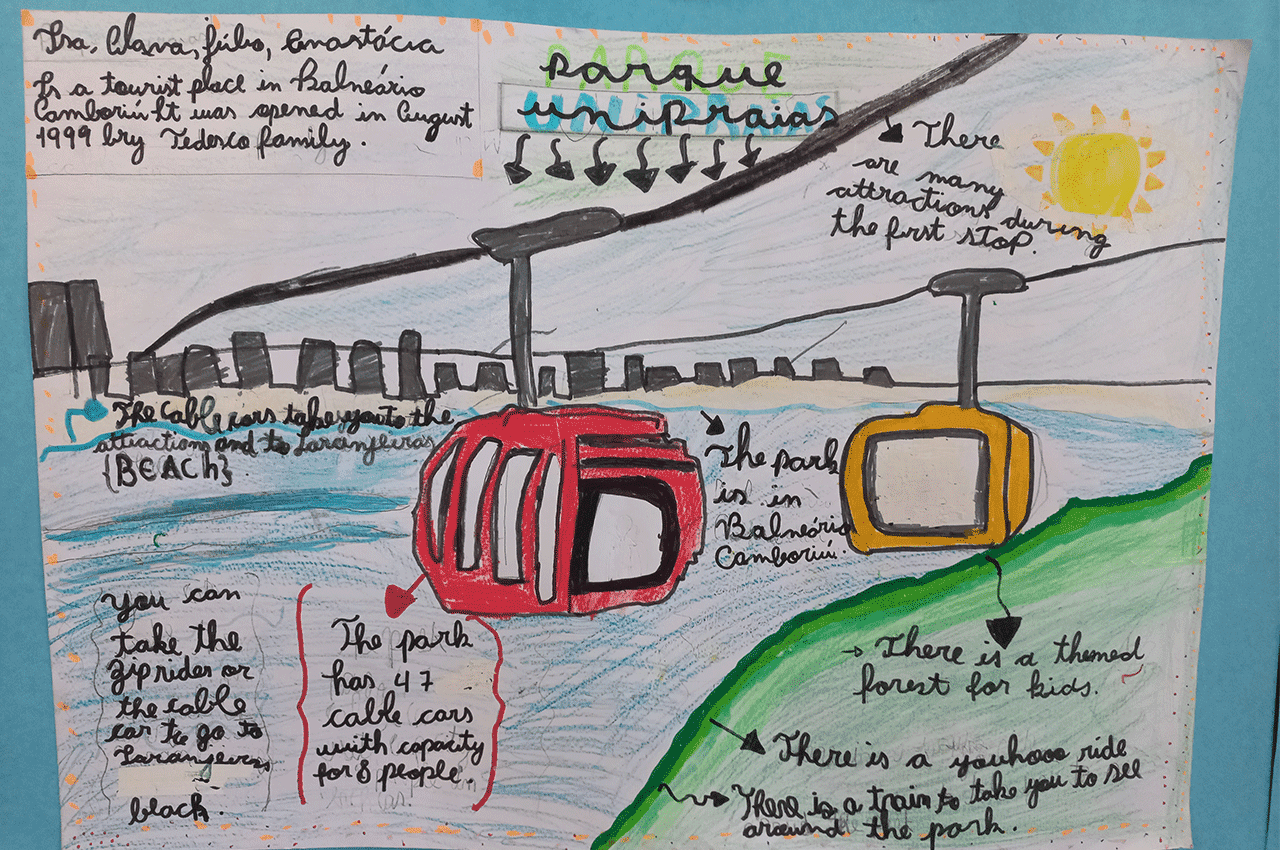 Isa, Clara, Júlio, Anastácia
Is a tourist place in Balneário
Camboriú. It was opened in August
1999 by Tedesco family.
parque
unipraias
There
are many
attractions during
the first stop.
The cable cars take you to the
attraction and to Laranjeiras
{BEACh}
The park
is in
Balneário
Camboriú.
You can
take the
zip rider or
the cable
car to go to
Laranjeiras
beach.
The park
has 47
cable cars
with capacity
for 8 people.
There is a themed
forest for kids.
There is a youhooo ride
There is a train to take you to see
around the park.